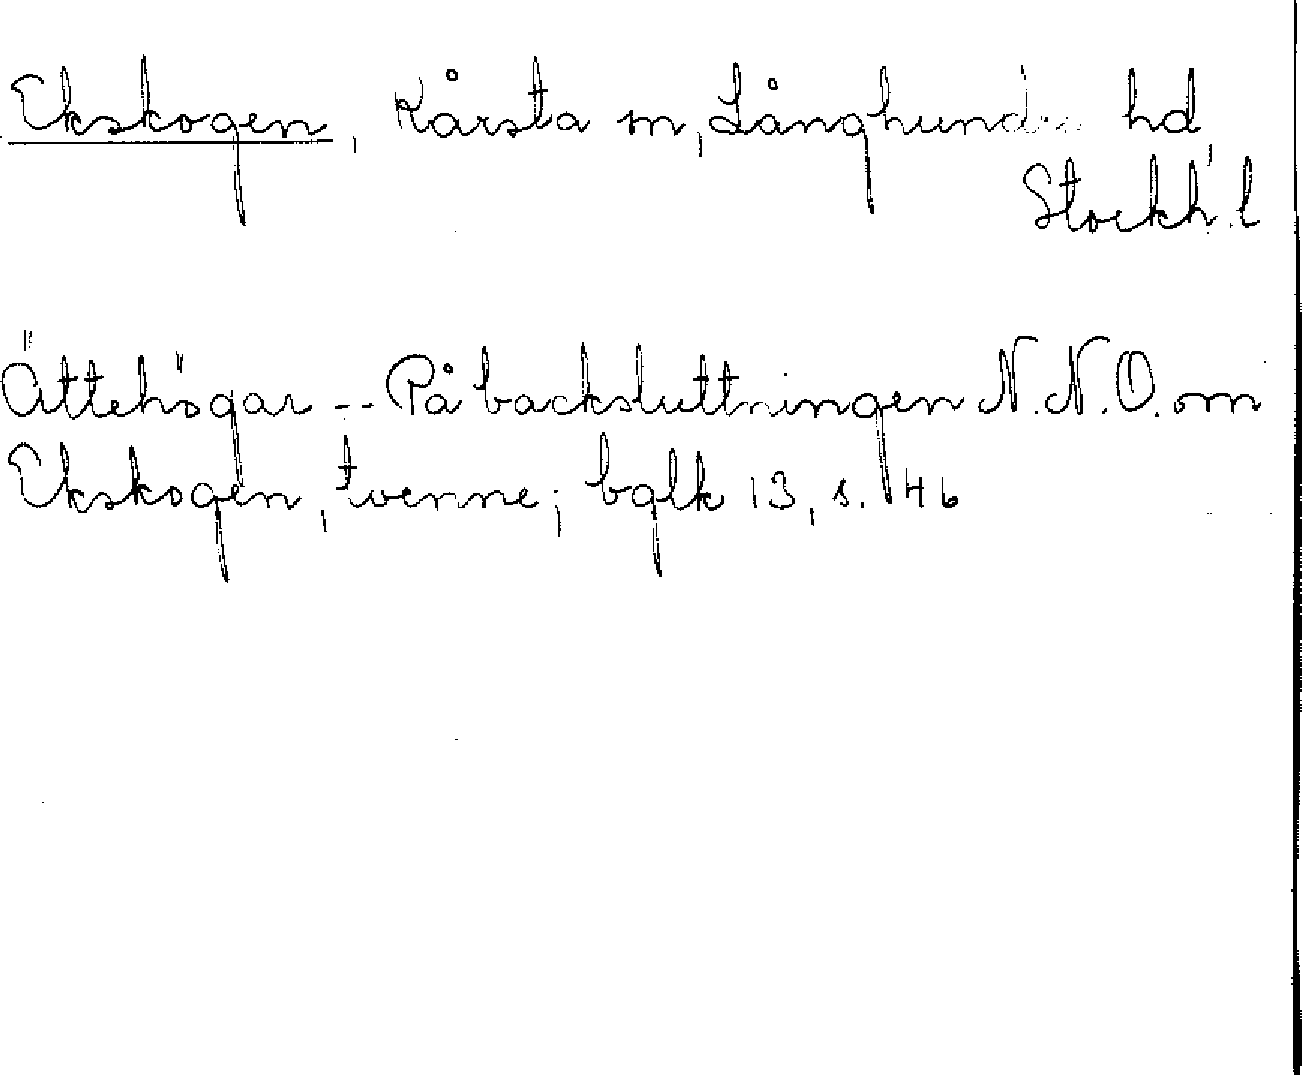 Ekskogen, Kårsta sn, Långhundra hd,
Stockh. l
Ättehögar -- På backsluttningen N.N.O. om
Ekskogen, tvenne; bglk 13, s. 46